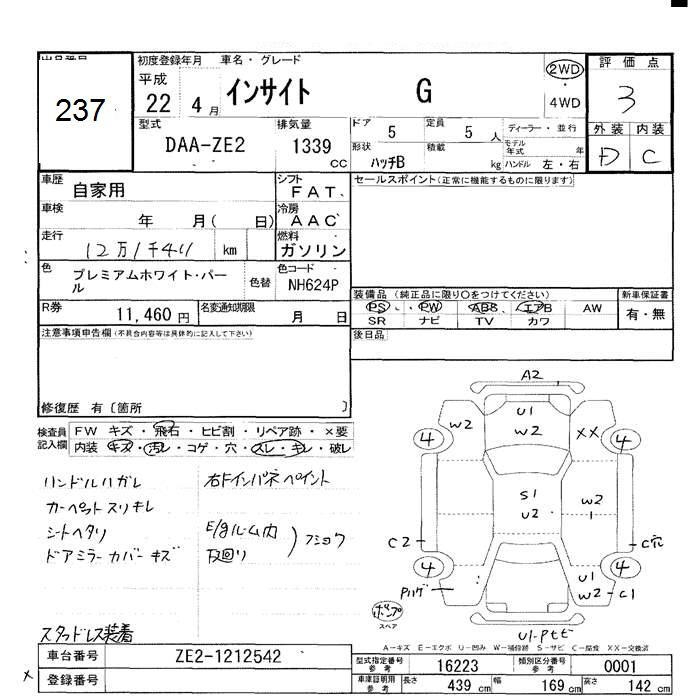 出品番号
237
初度登録年月
平成
22年 4月
車名・グレード
インサイト G
2WD
・
4WD
評価点
3
外装 内装
D C
型式
DAA-ZE2
排気量
1339 CC
ドア 5
定員 5 人
ディーラー・並行
形状 ハッチB
積載 kg
モデル年式 年
ハンドル 左・右
車歴
自家用
シフト
FAT
セールスポイント(正常に機能するものに限ります)
車検
年 月( 日)
冷房
AAC
走行
12万1千411 km
燃料
ガソリン
色
プレミアムホワイト・パール
色替
色コード
NH624P
R券
11,460 円
名変通知期限
月 日
装備品(純正品に限り○をつけてください)
PS ・ PW ・ ABS ・ エアB AW
SR ナビ TV カワ
新車保証書
有・無
後日品
注意事項申告欄(不具合内容等は具体的に記入して下さい)
修復歴 有〔箇所 〕
検査員記入欄
FW キズ・飛石・ヒビ割・リペア跡・×要
内装 キズ・汚レ・コゲ・穴・スレ・キレ・破レ
ハンドルハガレ
カーペットスリキレ
シートヘタリ
ドアミラーカバーキズ
右ドインパネペイント
E/gルーム内
下回り
フショク
スタッドレス装着
A2
U1
W2
W2
XX
4
4
S1
U2
W2
1
C2
C穴
4
4
Pハゲ
U1
W2-C1
ポンプ
スペア
A-キズ E-エクボ U-凹み W-補修跡 S-サビ C-腐食 XX-交換済
車台番号
ZE2-1212542
登録番号
型式指定番号
参考
16223
類別区分番号
参考
0001
車庫証明用
参考
長さ 439 cm
幅 169 cm
高さ 142 cm